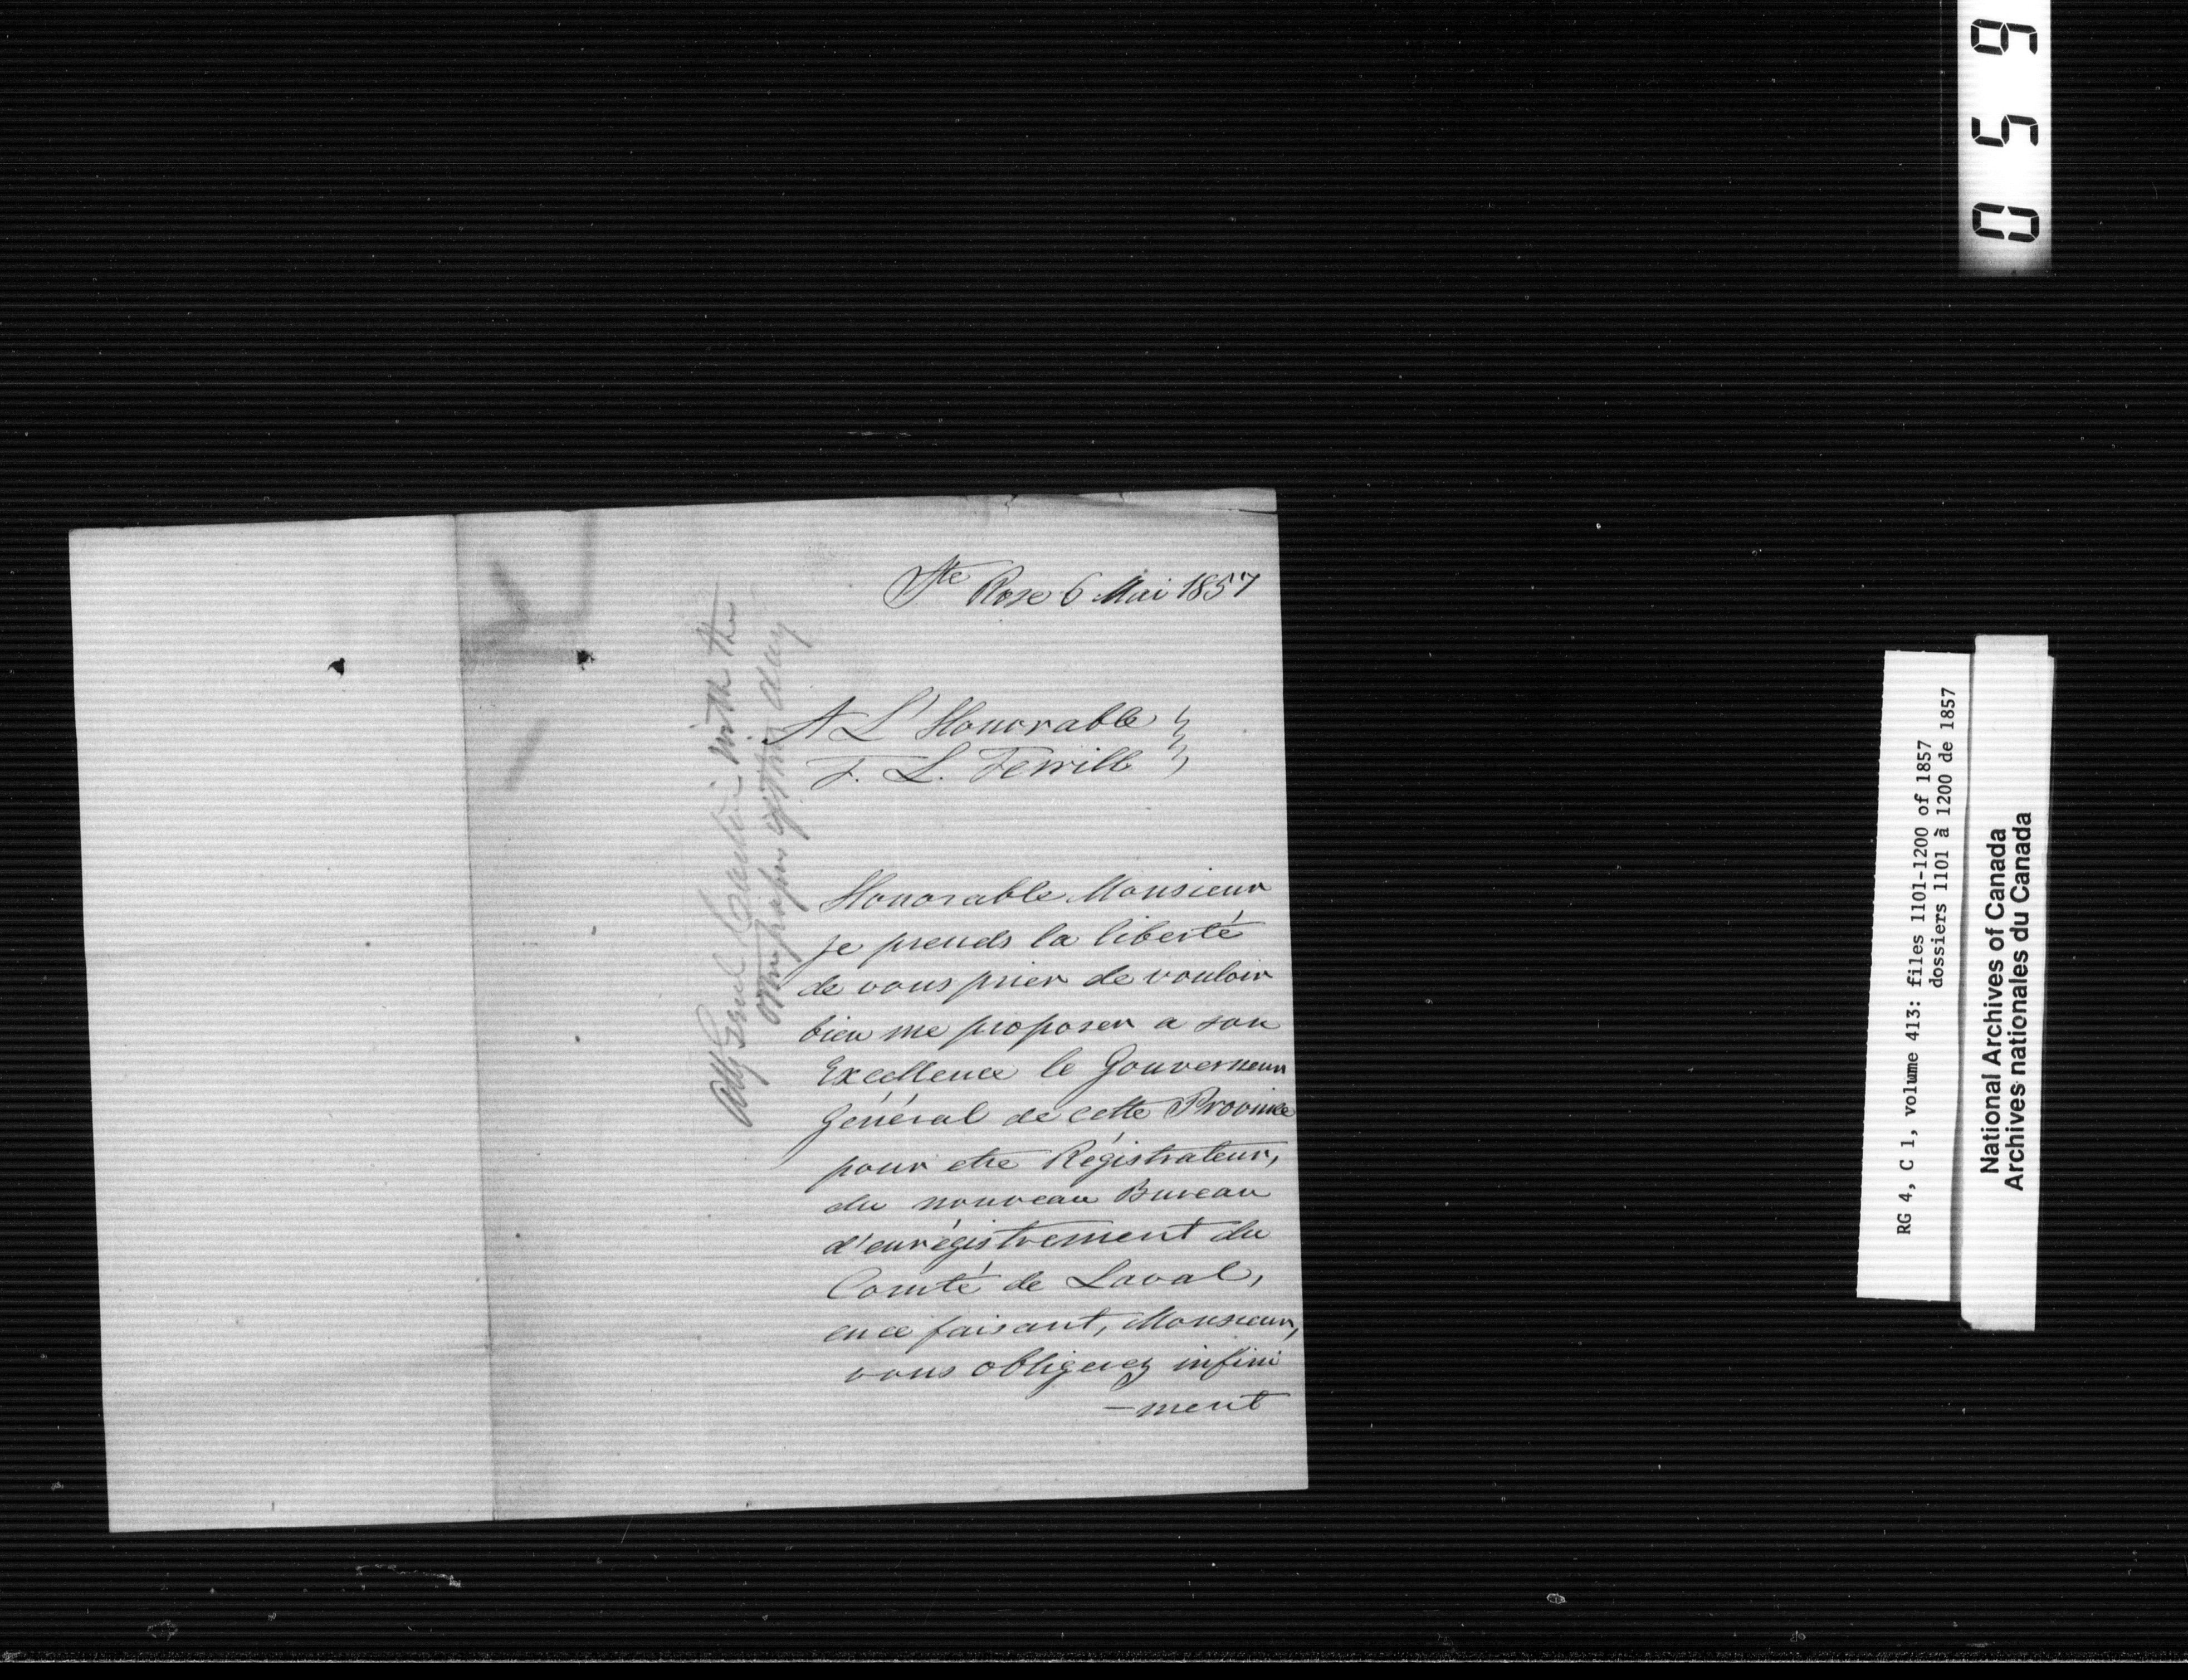 Ste Rose 6 Mai 1857
A L'Honorable
T. L. Terrill
Honorable Monsieur
je prends la liberté
de vous prier de vouloir
bien me proposer a son
Excellence le Gouverneur
Général de cette Province
pour etre Régistrateur,
du nouveau Bureau
d'enrégistrement du
Comté de Laval,
en ce faisant, Monsieur,
vous obligerez infini
-ment
Atty Genl Cartier with the
other papers of this day
059
RG 4, C 1, volume 413: files 1101-1200 of 1857
dossiers 1101 à 1200 de 1857
National Archives of Canada
Archives nationales du Canada